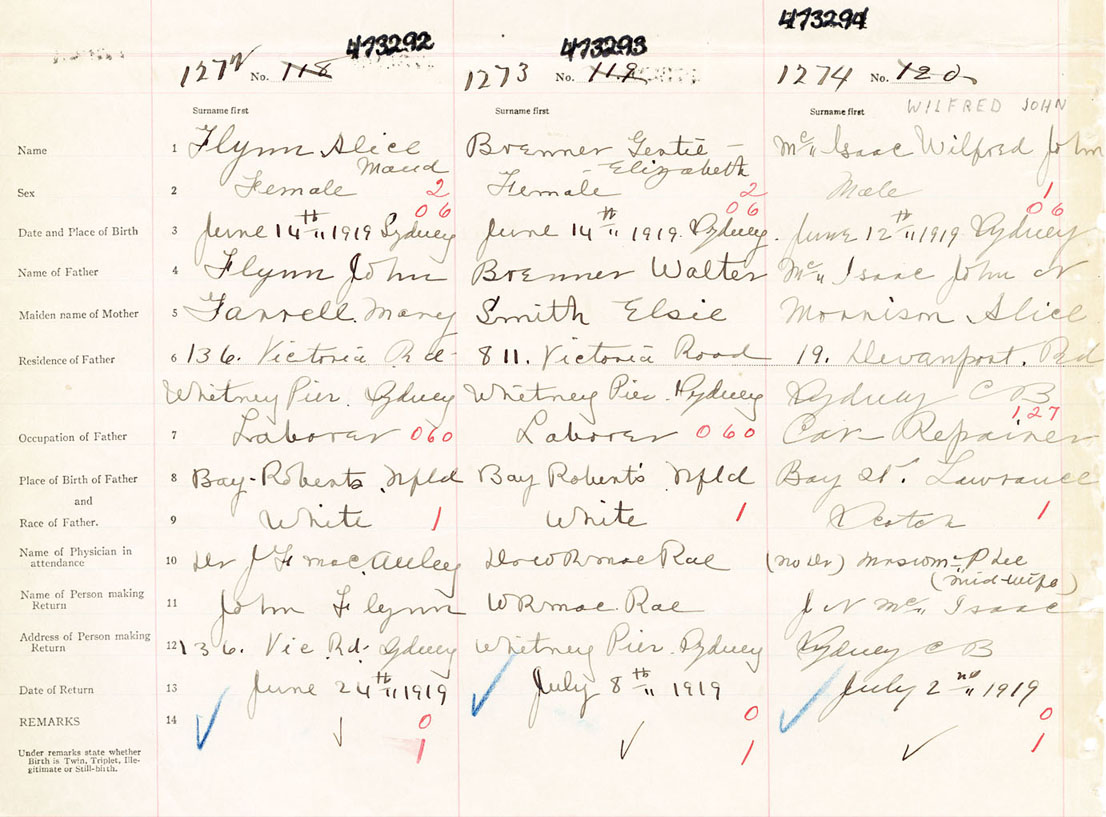 473292 473293 473294
1272 No. 118 1273 No. 119 1274 No. 120
Surname first Surname first Surname first WILFRED JOHN
Name 1 Flynn Alice Brenner Gertie - Mc Isaac Wilfred John
Maud Elizabeth
Sex 2 Female 2 Female 2 Male 1
06 06 06
Date and Place of Birth 3 June 14th 1919 Sydney June 14th 1919. Sydney. June 12th 1919 Sydney
Name of Father 4 Flynn John Brenner Walter Mc Isaac John N
Maiden name of Mother 5 Farrell. Mary Smith Elsie Morrison Alice
Residence of Father 6 136. Victoria Rd- 811. Victoria Road 19. Devanport. Rd
Whitney Pier. Sydney Whitney Pier. Sydney Sydney C B
127
Occupation of Father 7 Laborer 060 Laborer 060 Car- Repairer
Place of Birth of Father 8 Bay-Roberts. Nfld Bay Robert's Nfld Bay St. Lawrance
and
Race of Father. 9 White 1 White 1 Scotch 1
Name of Physician in
attendance 10 Dr J F MacAuley Dr W R MacRae (No Dr)
(Mid-wife)
Name of Person making
Return 11 John Flynn W R Mac. Rae J N Mc Isaac
Address of Person making
Return 12 136. Vic Rd. Sydney Whitney Pier. Sydney Sydney C B
Date of Return 13 June 24th 1919 July 8th 1919 July 2nd 1919
REMARKS 14 0 0 0
Under remarks state whether 1 1 1
Birth is Twin, Triplet, Ille-
gitimate or Still-birth.